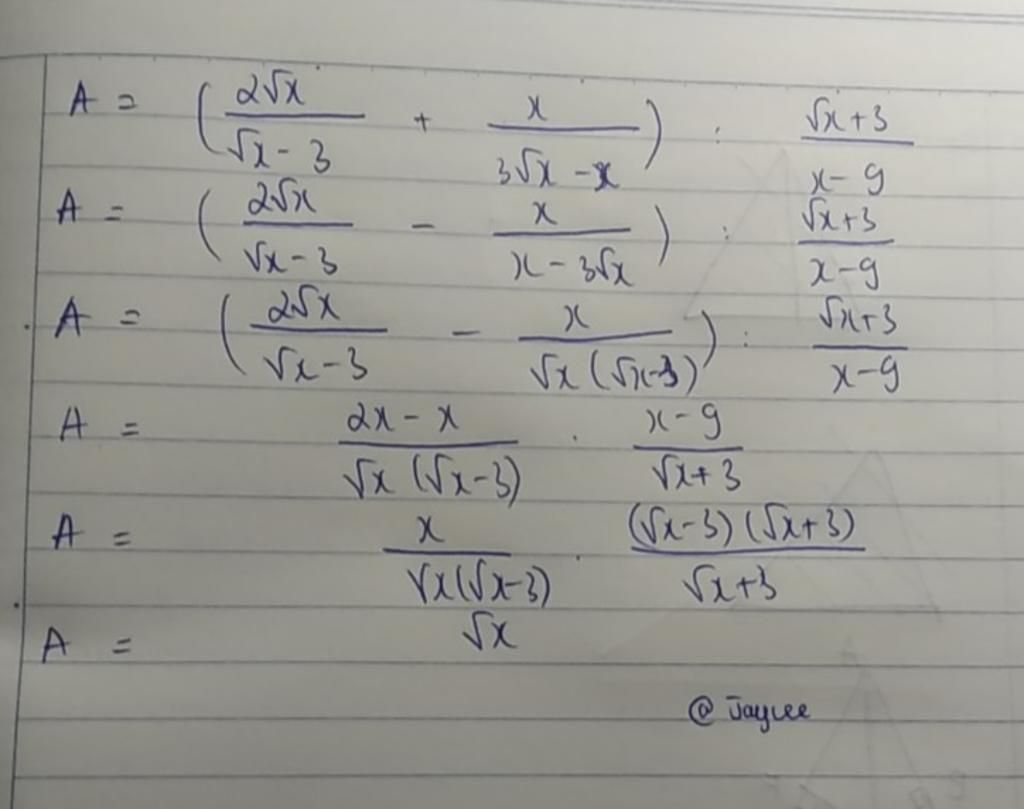 A = (2√x/(√x - 3) + x/(3√x - x)) : (√x+3)/(x-9)
A = (2√x/(√x-3) - x/(x-3√x)) : (√x+3)/(x-9)
A = (2√x/(√x-3) - x/(√x(√x-3))) : (√x+3)/(x-9)
A = (2x-x)/(√x(√x-3)) . (x-9)/(√x+3)
A = x/(√x(√x-3)) . (√x-3)(√x+3)/(√x+3)
A = √x
@ Jaylee